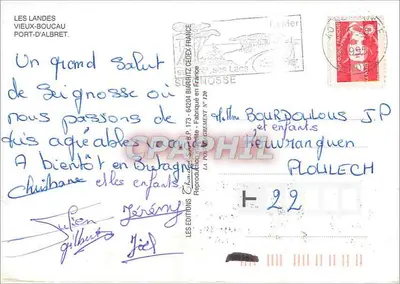 LES LANDES
VIEUX-BOUCAU
PORT-D'ALBRET.
Un grand salut
de Seignosse où
nous passons de
très agréables vacances
A bientôt en Bretagne
Christiane et les enfants
Julien
Jérémy
Gilbert
Joël
LES EDITIONS
B.P. 173 - 64204 BIARRITZ CEDEX FRANCE
Reproduction interdite - Fabriqué en France
SEIGNOSSE
CPAPHIL
BOURDOULOUS J.P
et enfants
Keruranguen
PLOULECH
22